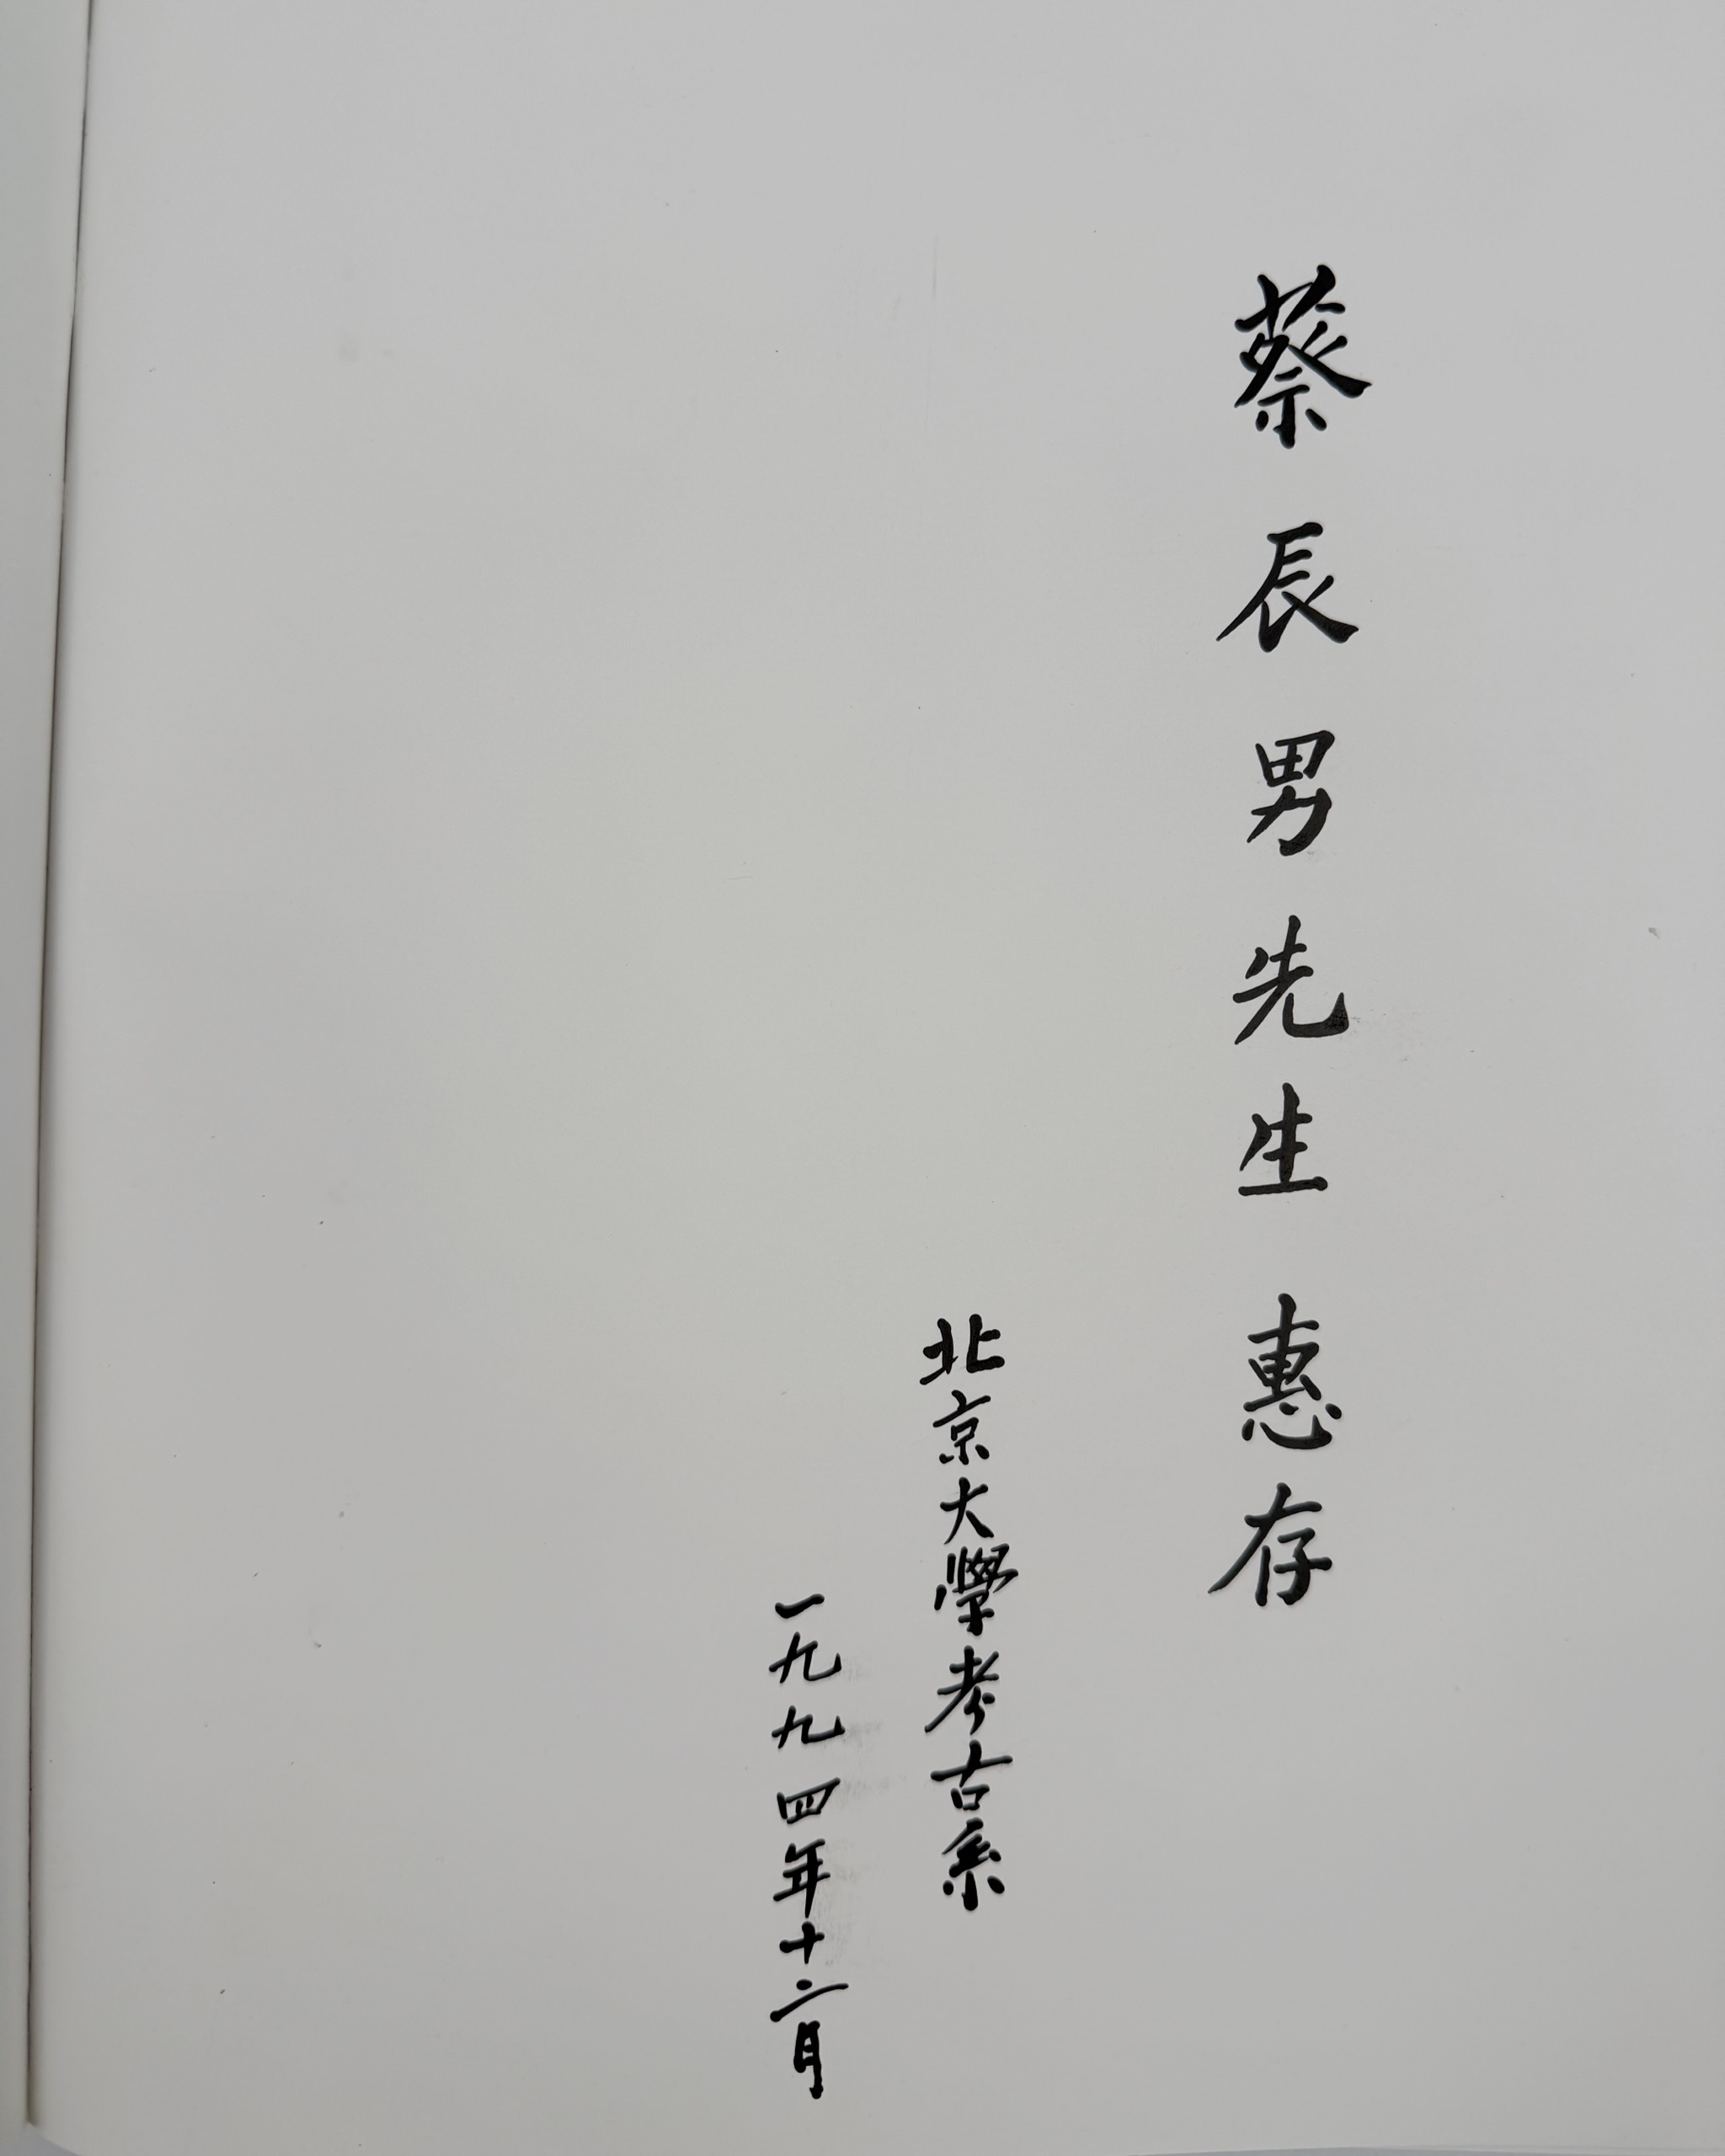 蔡辰男先生惠存
北京大學考古系
一九九四年十二月